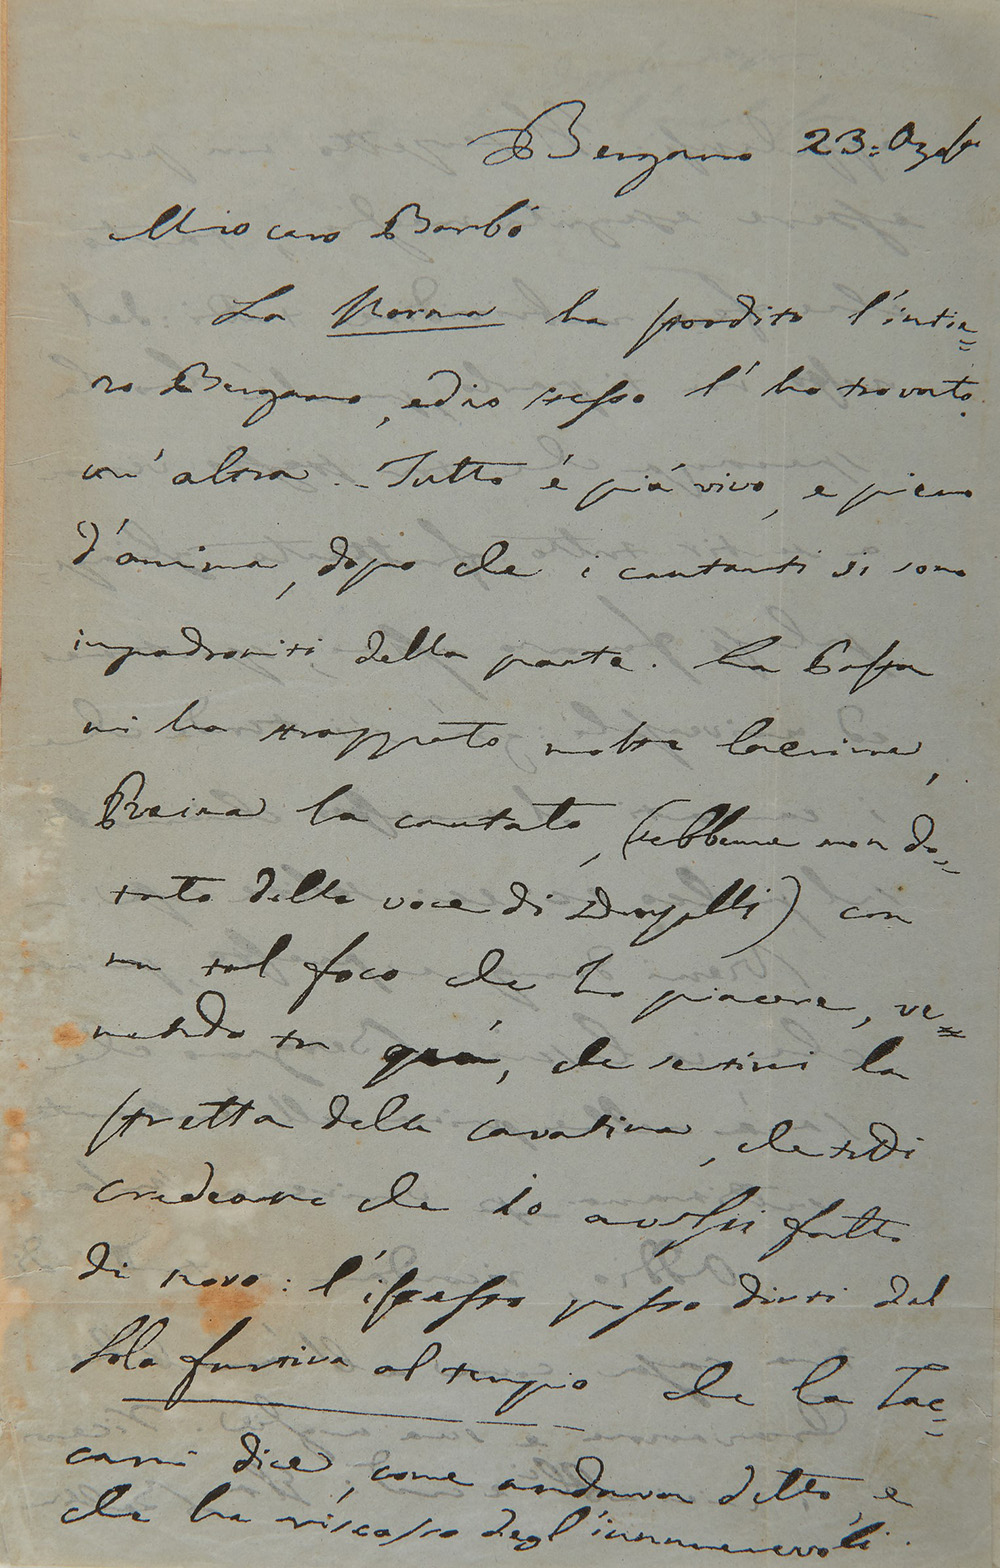 Bergamo 23: Ag.to
Mio caro Barbò
La Norma ha stordito l'intie=
ro Bergamo, ed io stesso l'ho trovata
un'altra.. Tutto è più vivo, e pieno
d'anima, dopo che i cantanti si sono
impadroniti della parte. La Pasta
mi ha strappato molte lacrime,
Reina ha cantato, (sebbene non do=
tato della voce di Donzelli) con
un tal foco che ha piacere, ve=
nendo tu quà, che sentissi la
stretta della cavatina, che tutti
credeano che io avessi fatto
di novo: l'istesso posso dirti del
Sola furtiva al tempio che la Tac=
cani dice, come andava detto, e
che ha riscosso degl'innumerevoli